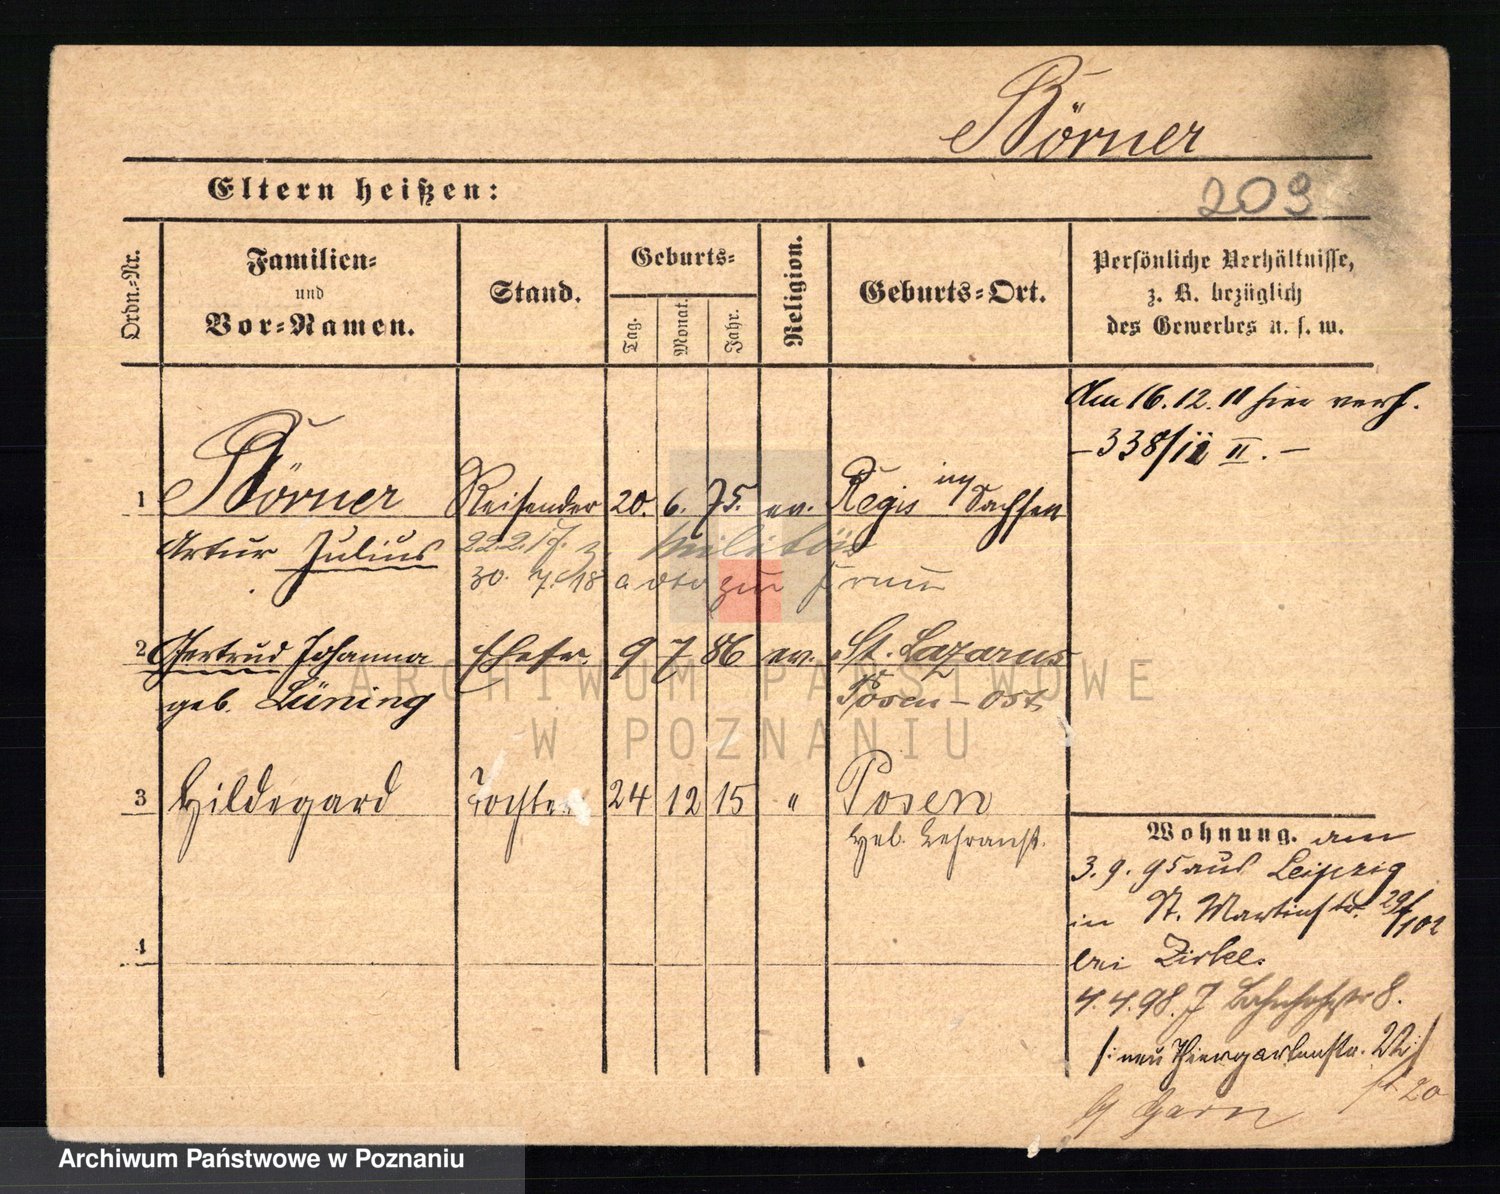 Börner
Eltern heißen:
209
Ordn.-Nr.
Familien-
und
Vor-Namen.
Stand.
Geburts-
Tag.
Monat.
Jahr.
Religion.
Geburts-Ort.
Persönliche Verhältnisse,
z. B. bezüglich
des Gewerbes u. s. w.
Am 16.12.11 hier verh.
- 338/11 II. -
1 Börner Reisender 20. 6. 75. ev. Regis in Sachsen
Artur Julius 22.2.17. z. Militär
30. 7. 18 a dto zur
2 Gertrud Johanna Ehefr. 9 7 86 ev. St. Lazarus
geb. Lüning Posen - Ost
3 Hildegard Tochter 24 12 15 " Posen
Heb. Lehranst.
4
Wohnung. am
3. 9. 95 aus Leipzig
in St. Martinstr.
bei Zirkel.
4. 4. 98. J Bahnhofstr 8.
/: neu Thiergartenstr. :/
20
ARCHIWUM PAŃSTWOWE
W POZNANIU
Archiwum Państwowe w Poznaniu